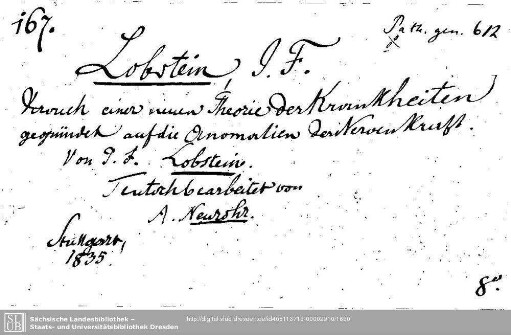 167.
Path. gen. 612
Lobstein, J. F.
Versuch einer neuen Theorie der Krankheiten
gegründet auf die Anomalien der Nervenkraft.
Von J. F. Lobstein.
Teutsch bearbeitet von
A. Neurohr.
Stuttgart,
1835.
8°
SLUB
Sächsische Landesbibliothek –
Staats- und Universitätsbibliothek Dresden